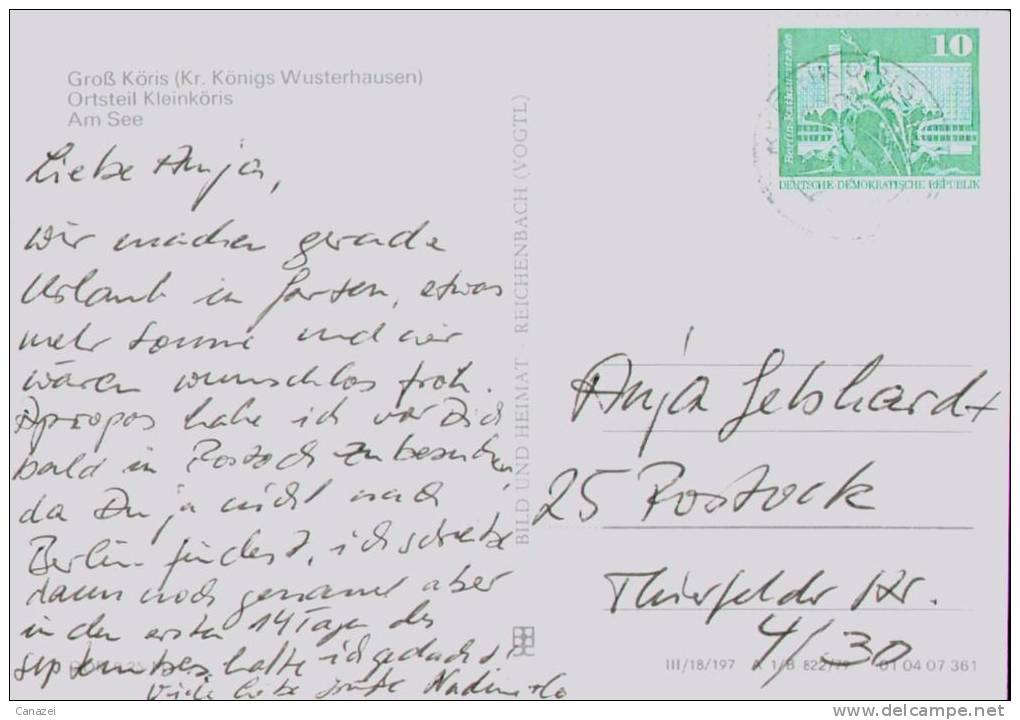 Groß Köris (Kr. Königs Wusterhausen)
Ortsteil Kleinköris
Am See
Liebe Anja,
Wir machen gerade
Urlaub in Garten, etwas
mehr Sonne und wir
wären wunschlos froh.
Apropos habe ich vor Dich
bald in Rostock zu besuchen,
da Du ja nicht nach
Berlin findest, ich schreibe
dann noch genauer aber
in den ersten 14 Tagen des
September hatte ich gedacht!
Viele liebe Grüße Nadine
BILD UND HEIMAT · REICHENBACH (VOGTL)
10
Berlin-Rathausstraße
DEUTSCHE DEMOKRATISCHE REPUBLIK
Anja Gebhardt
25 Rostock
Thierfelder Str.
4/30
III/18/197 A 1/B 822/79 01 04 07 361
Canazei
delcampe.net